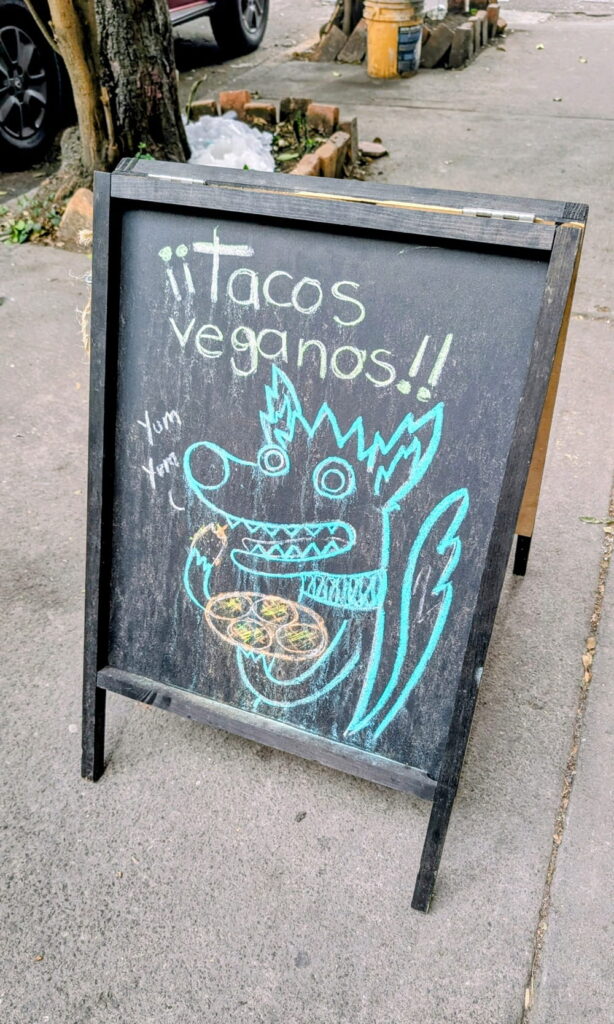 ¡¡Tacos
veganos!!
Yum
Yum